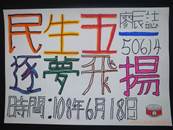 民生五
廖辰誌
50614
逐夢飛揚
時間:108年6月18日